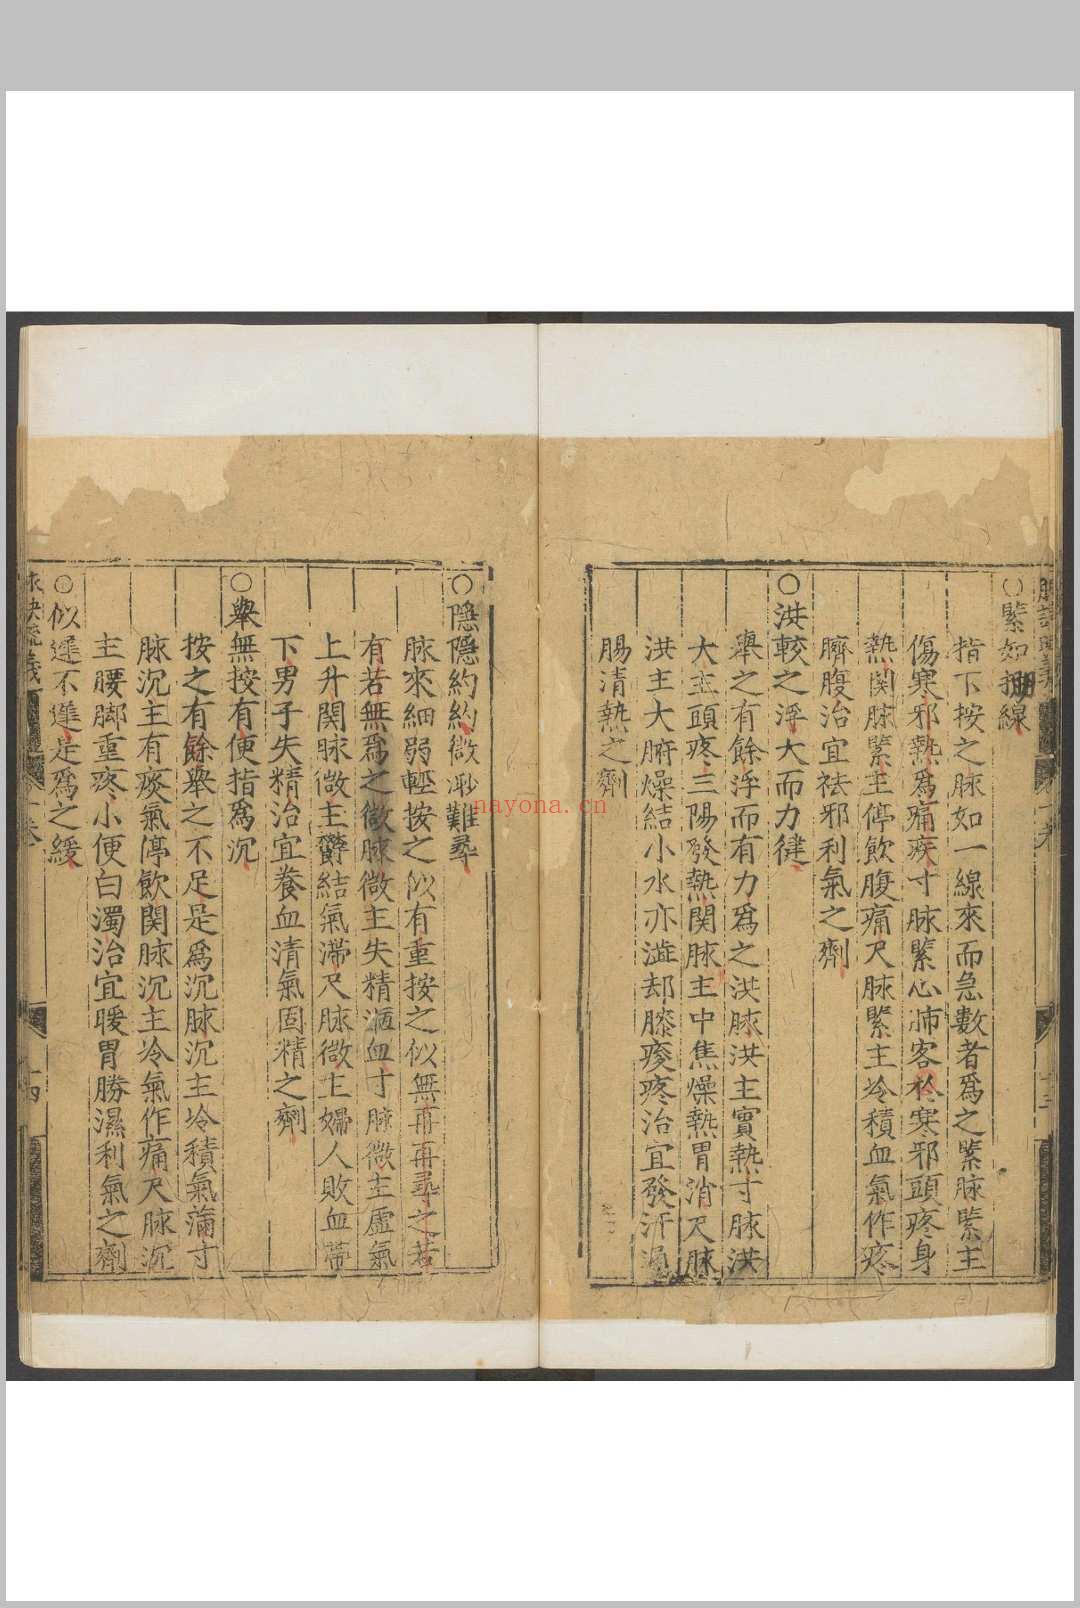 ○緊如線
指下按之脉如一線來而急數者爲之緊脉緊主
傷寒邪熱爲痛疾寸脉緊心肺客於寒邪頭疼身
熱関脉緊主停飲腹痛尺脉緊主冷積血氣作疼
臍腹治宜祛邪利氣之劑
○洪較之浮大而力徤
舉之有餘浮而有力爲之洪脉洪主實熱寸脉洪
大主頭疼三陽發熱関脉主中焦燥熱胃消尺脉
洪主大腑燥結小水亦澁却膝痠疼治宜發汗
腸清熱之劑
○隱隱約約微渺難尋
脉來細弱輕按之似有重按之似無再再尋之若
有若無爲之微脉微主失精血寸脉微主虛氣
上升関脉微主欝結氣滯尺脉微主婦人敗血帶
下男子失精治宜養血清氣固精之劑
○舉無按有便指爲沉
按之有餘舉之不足是爲沉脉沉主冷積氣滿寸
脉沉主有痰氣停飲関脉沉主冷氣作痛尺脉沉
主腰脚重疼小便白濁治宜暖胃勝濕利氣之劑
○似遲不進是爲之緩
脉訣疏義
卷
十四
nayona.cn